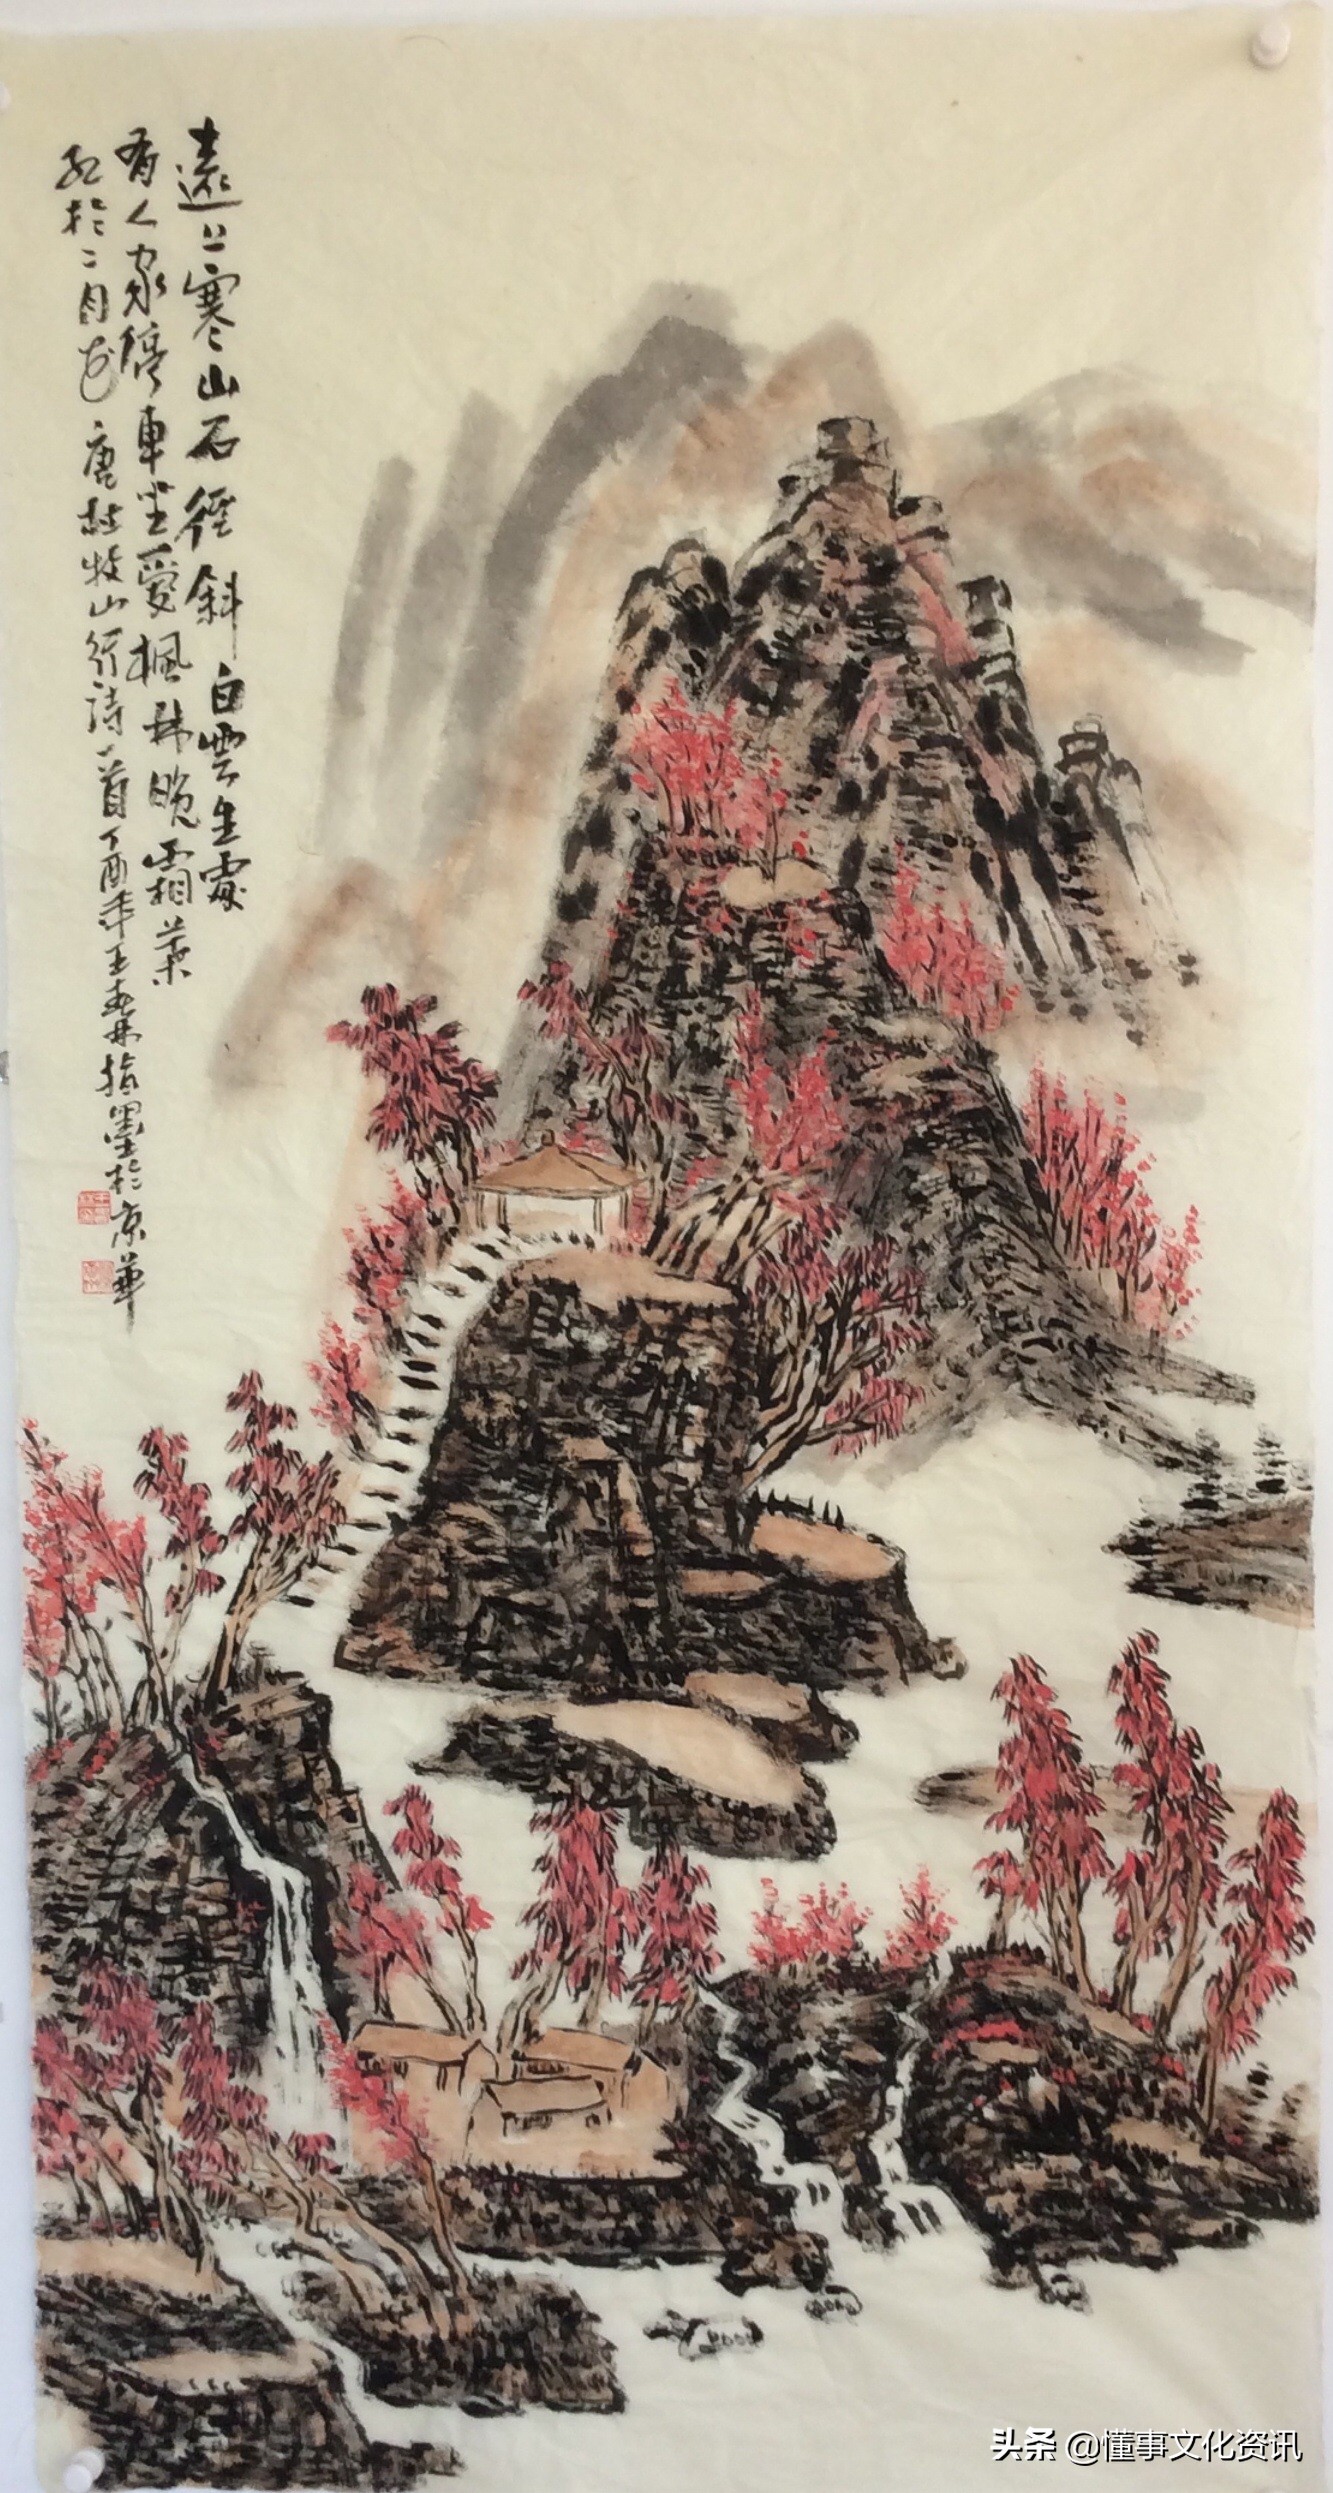 遠上寒山石徑斜白雲生處
有人家停車坐愛楓林晚霜葉
紅於二月花 唐杜牧山行詩一首丁酉年王春林指墨於京華
头条 @懂事文化资讯